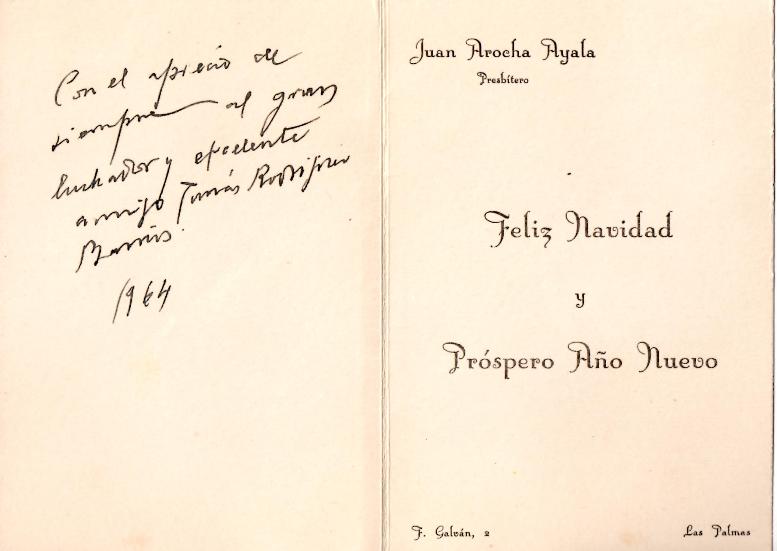 Con el aprecio de
siempre al gran
luchador y excelente
amigo Tomás Rodríguez
1964
Juan Arocha Ayala
Presbítero
Feliz Navidad
y
Próspero Año Nuevo
F. Galván, 2
Las Palmas